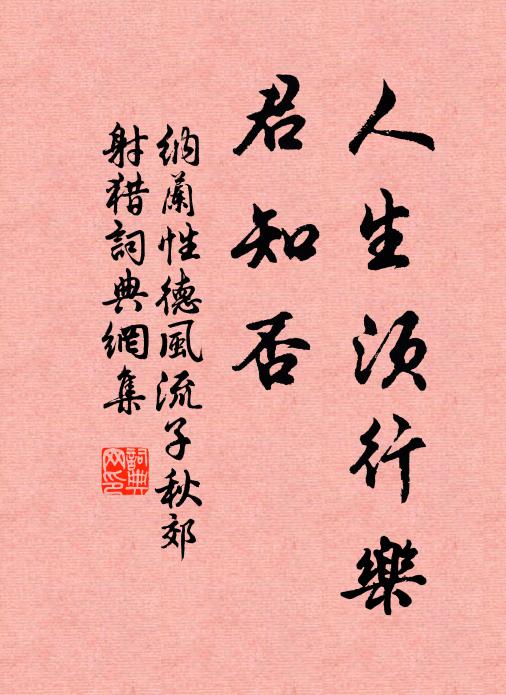 人生須行樂
君知否
納蘭性德風流子秋郊
射猎詞典網集
詞典
网印